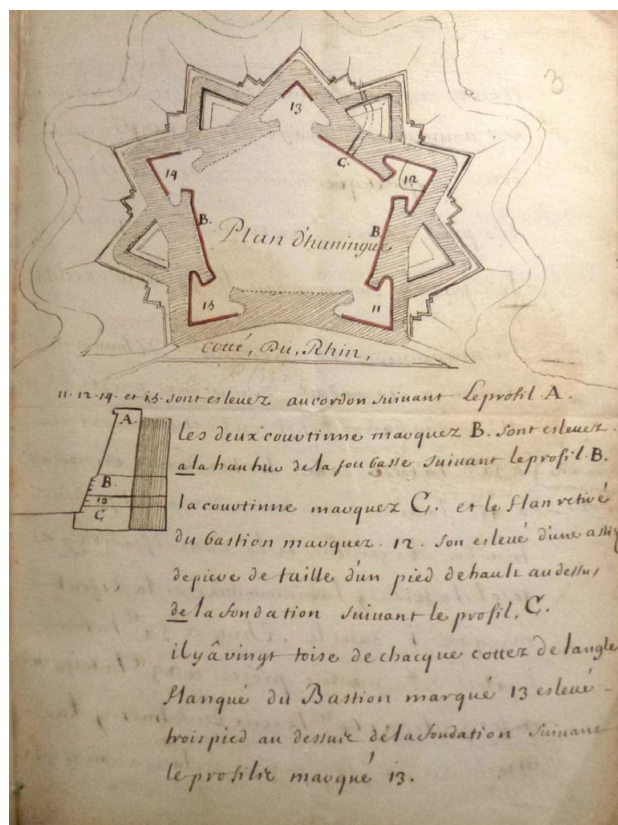 3
13
C.
14
12
B.
B
Plan d'huningue
15
11
cotté, Du, Rhin,
11. 12. 14. et 15. sont esleuez au cordon suiuant Le profil. A.
A.
les deux courtinne marquez B. sont esleuez.
B.
a la hauteur de la soubasse suiuant le profil. B.
13
C
la courtinne marquez C. et le flan retiré
du bastion marquez. 12. son esleué d'une
de piere de taille d'un pied de hault au dessus
de la fondation suiuant le profil, C.
il y â vingt toise de chacque cottez de langle
flanqué du Bastion marqué 13 esleué -
trois pied au dessus de la fondation suiuant
le profille marqué 13.